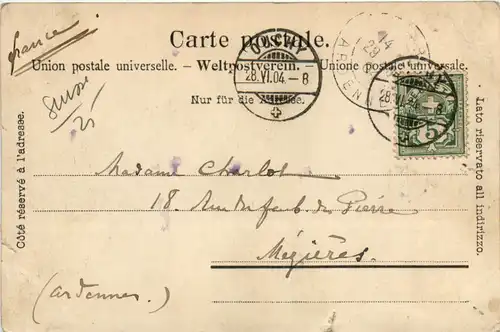 france
Carte postale.
Union postale universelle. – Weltpostverein. – Unione postale universale.
Nur für die Adresse.
OUCHY
28.VI.04.–8
OUCHY
28.VI.04
5
ARDENN
Suisse
25
Côté réservé à l'adresse.
Lato riservato all indirizzo.
Madame Charlot
18. Rue du faub. de Pierre
Mézières
(ardennes.)